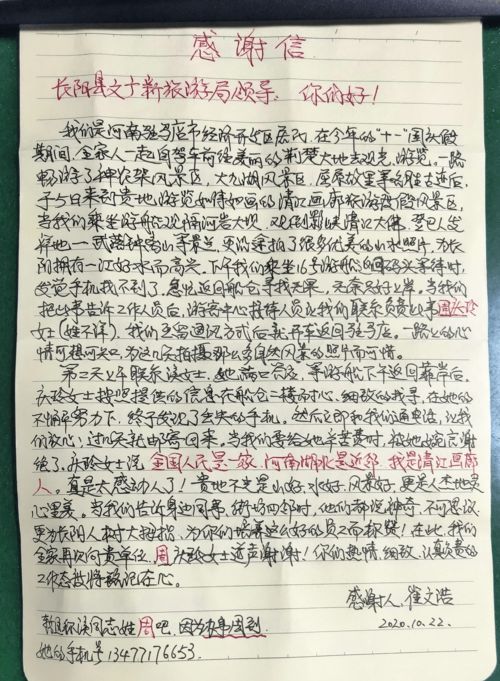 感谢信
长阳县文旅新旅游局领导： 你们好！
我们是河南驻马店市经济开发区居民，在今年的"十一"国庆假
期间，全家人一起自驾车前往美丽的荆楚大地去观光、游览，一路
畅游了神农架风景区，大九湖风景区，屈原故里等胜古迹后，
于5日来到贵地游览如诗如画的清江画廊旅游度假风景区，
当我们乘坐游船观隔河岩大坝，倒影峡清江大佛，登巴人发
祥地——武落钟离山等景点，更沿途拍了很多优美的山水照片，为长
阳拥有一江好水而高兴。下午我们乘坐16号游船返回码头等待时，
发觉手机找不到了，急忙返回船仓寻找无果，无奈只好上岸，当我们
把此事告诉工作人员后，游客中心接待人员让我们联系负责此事周庆玲
女士（姓不详），我们互留通讯方式后就开车返回驻马店。一路上的心
情可想而知，为这几天拍摄那么多自然风景的照片而可惜。
第二天上午联系该女士，她满口答应，等游船下午返回靠岸后。
庆玲女士按照提供的信息在船仓二楼耐心、细致的找寻，在她的
不懈努力下，终于发现了丢失的手机。然后立即和我们通电话，让我
们放心；过几天就邮寄回来。当我们要给她辛苦费时，被她婉言谢
绝了。庆玲女士说，全国人民是一家，河南湖北是近邻，我是清江画廊
人。真是太感动人了！贵地不光是山好、水好、风景好，更是人杰地灵
心里美。当我们告诉身边同事，街坊四邻时，他们都说神奇，不可思议
更为长阳人树大拇指，为你们培养这么好的员工而称赞！在此，我们
全家再次向贵单位、周庆玲女士道声谢谢！你们热情、细致、认真负责的
工作态度将铭记在心。
感谢人：崔文浩
2020.10.22.
就该同志姓周吧，因为办事周到。
她的手机号13477176653.